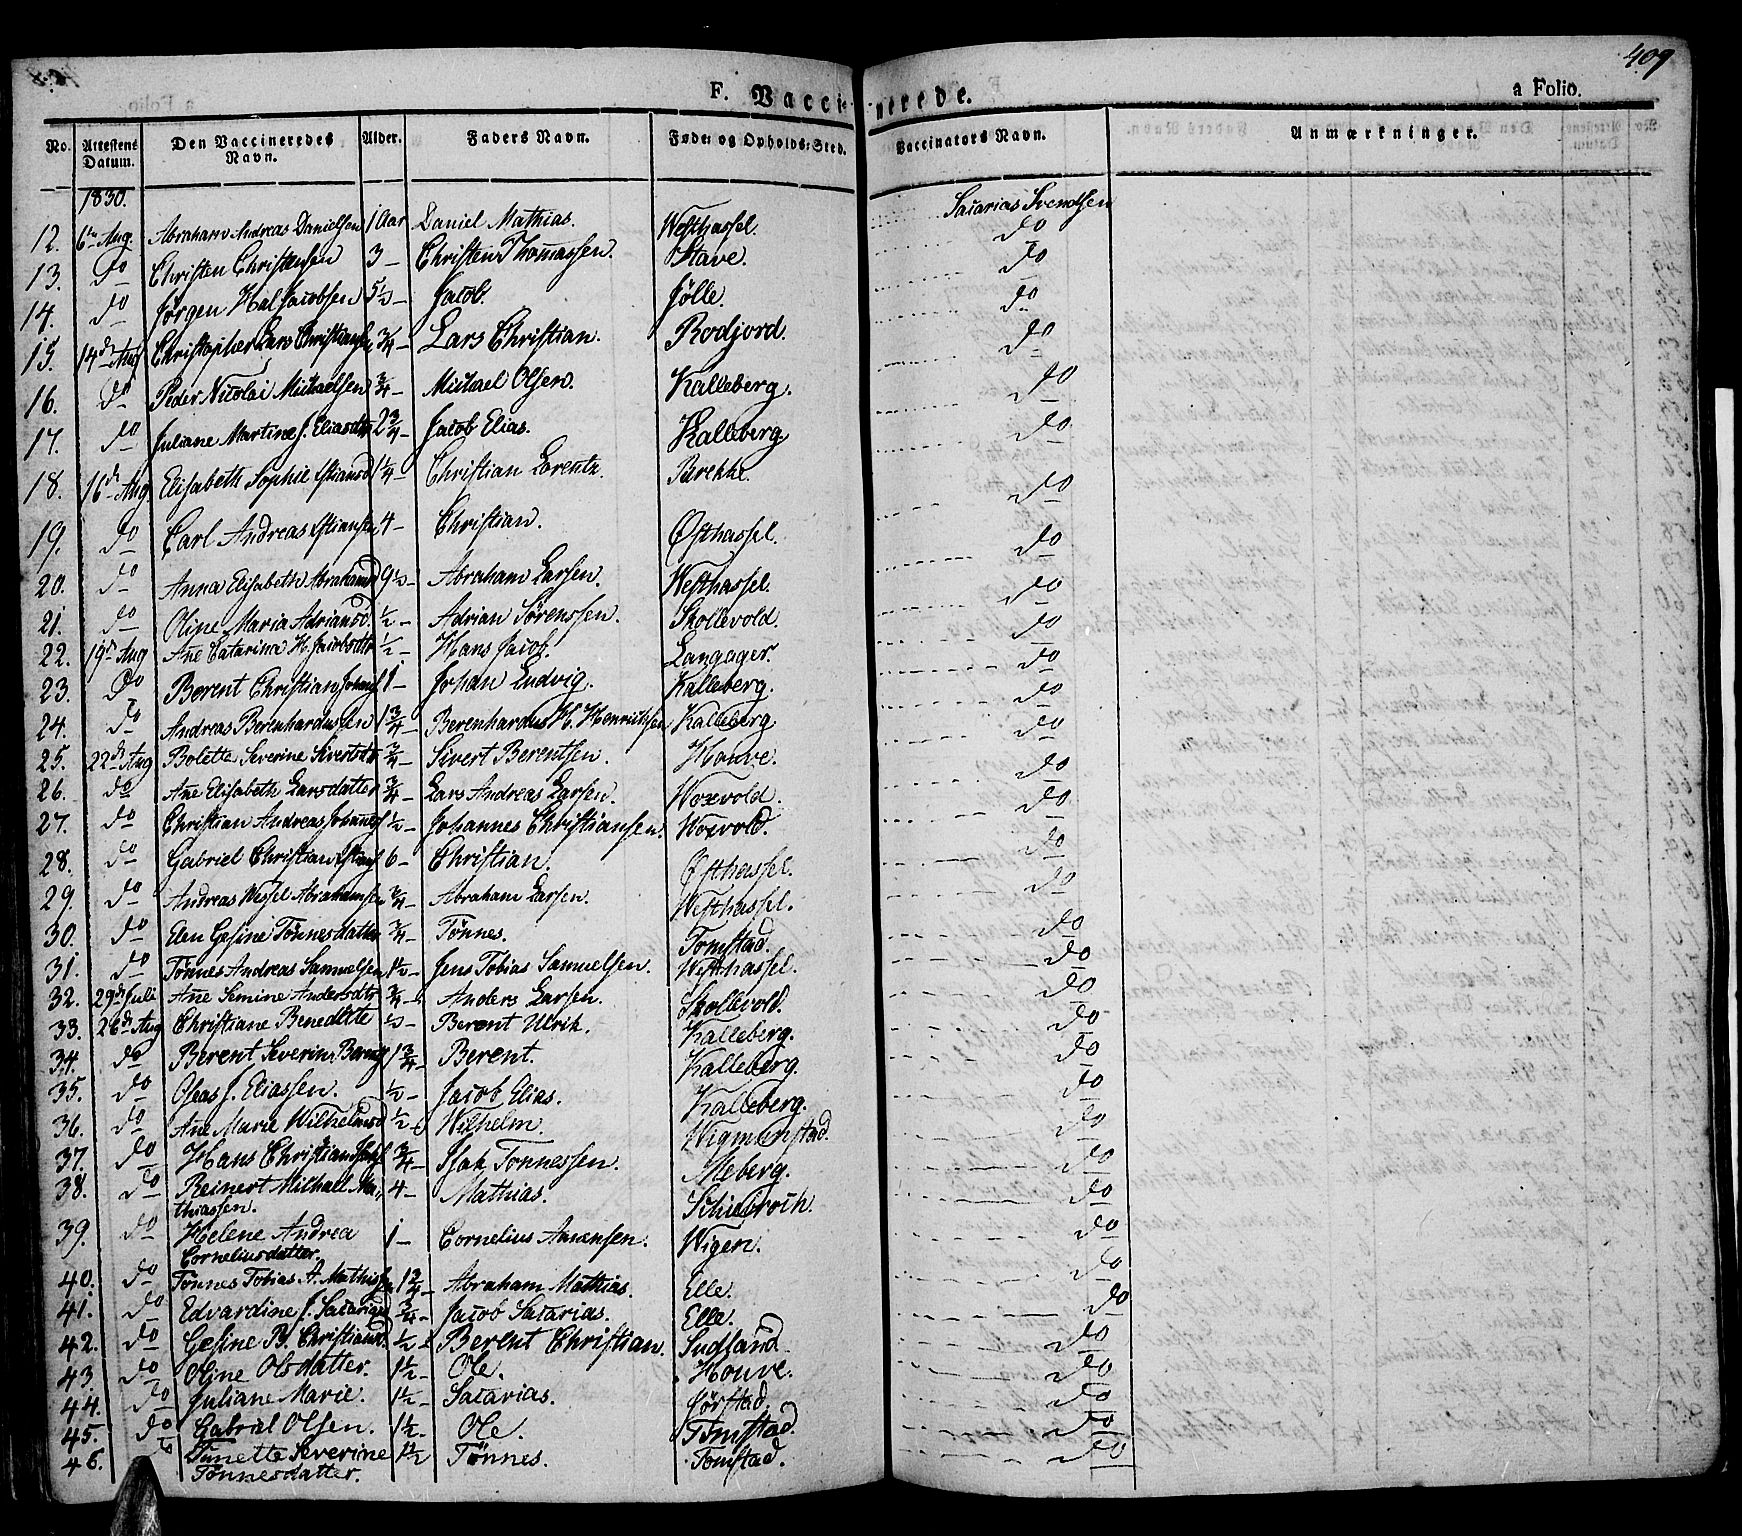 409
F. Vaccinerede.
a Folio.
No. Attestens Datum. Den Vaccineredes Navn. Alder. Faders Navn. Føde- og Opholds-Sted. Vaccinators Navn. Anmærkninger.
1830.
12. 6te Aug. Abraham Andreas Danielsen 10 aar Daniel Mathias. Westhassel. Sacarias Svendsen
13. do Christen Christensen 3 – Christen Thomassen. Stave. do
14. do Jørgen Hal Jacobsen 5½ – Jacob. Jølle. do
15. 14de Aug Christopher Lars Christians ¾ – Lars Christian. Rodjord. do
16. do Peder Nicolai Michaelsen ¾ – Michael Olsen. Kalleberg. do
17. do Juliane Martine J. Eliasdtr 2¾ – Jacob Elias. Kalleberg do
18. 16de Aug Elisabeth Sophie 1¼ – Christian Lorentz. Brekke. do
19. do Carl Andreas 4 – Christian. Østhassel. do
20. do Anna Elisabeth Abrahamsd 9½ – Abraham Larsen. Westhassel. do
21. do Oline Maria Adriansd. ½ – Adrian Sørenssen. Skollevold. do
22. 19de Aug Ane Catarina H. Jacobsdtr ½ – Hans Jacob. Langager. do
23. do Berent Christian Johans 1 – Johan Ludvig. Kalleberg. do
24. do Andreas Berenhardussen 1¾ – Berenhardus H. Henrichsen Kalleberg do
25. 22de Aug Bolette Severine Sivertsdtr ¾ – Sivert Berentsen. Houve. do
26. do Ane Elisabeth Larsdatter ¾ – Lars Andreas Larsen. Woxvold. do
27. do Christian Andreas Johannes ½ – Johannes Christiansen. Woxvold. do
28. do Gabriel Christian 6 – Christian. Østhassel. do
29. do Andreas Wessel Abrahamsen ¾ – Abraham Larsen. Westhassel. do
30. do Elen Gesine Tønnesdatter ¾ – Tønnes. Tomstad. do
31. do Tønnes Andreas Samuelsen 1½ – Jens Tobias Samuelsen. Westhassel. do
32. 29de Juli Ane Semine Andersdtr ¾ – Anders Larsen. Skollevold. do
33. 26de Aug Christiane Benedicte ½ – Berent Ulrik. Kalleberg. do
34. do Berent Severin 1¾ – Berent. Kalleberg. do
35. do Oseas J. Eliassen. ½ – Jacob Elias. Kalleberg. do
36. do Ane Marie Wilhelmsd ½ – Wilhelm. Wigmunstad. do
37. do Hans Christian ¾ – Isak Tonnessen. Meberg. do
38. do Reinert Michael Ma- 4 – Mathias. do
thiassen.
39. do Helene Andrea 1 – Cornelius Aanensen. Wigen. do
Corneliusdatter.
40. do Tønnes Tobias A. Mathis 1¾ – Abraham Mathias. Elle. do
41. do Edvardine J. Sacarias ¾ – Jacob Sacarias. Elle. do
42. do Gesine B. Christiansd. ½ – Berent Christian. Sudland do
43 do Oline Olsdatter. 1½ – Ole. Houve. do
44. do Juliane Marie. 1½ – Sacarias. Jørstad. do
45. do Gabriel Olsen. 1½ – Ole. Tomstad. do
46. do Tunette Severine 1½ Tønnes. Tomstad. do
Tønnesdatter.